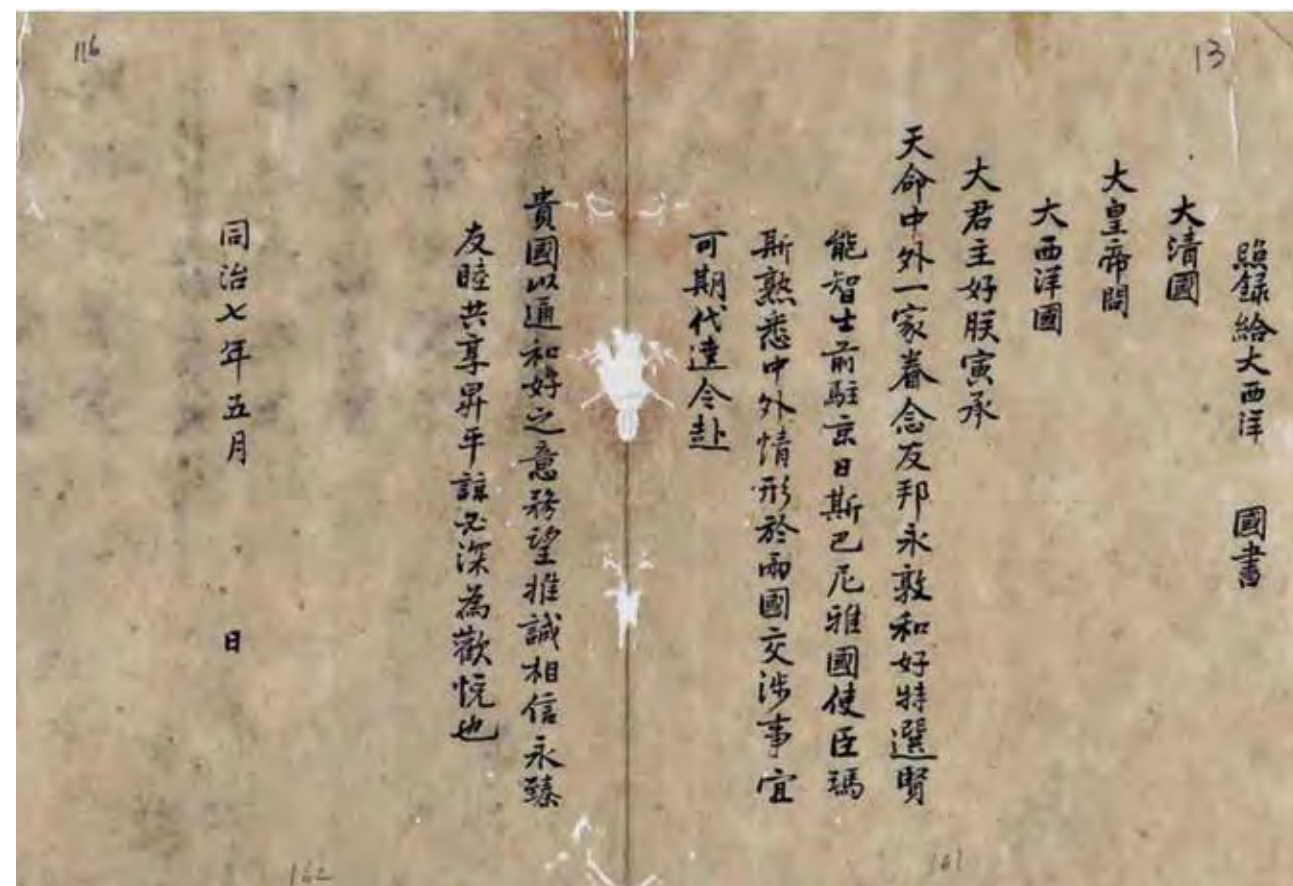 13
照録給大西洋 國書
大清國
大皇帝問
大西洋國
大君主好朕寅承
天命中外一家眷念友邦永敦和好特選賢
能智士前駐京日斯巴尼雅國使臣瑪
斯熟悉中外情形於兩國交涉事宜
可期代達令赴
貴國以通和好之意務望推誠相信永臻
友睦共享昇平諒必深為歡悅也
同治七年五月 日
116
161
162